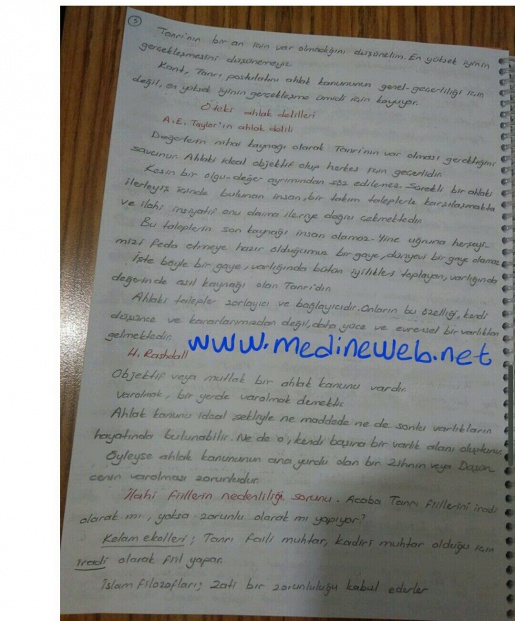 3
Tanrı'nın bir an için var olmadığını düşünelim. En yüksek iyinin
gerçekleşmesini düşünemeyiz.
Kant, Tanrı postulatını ahlak kanununun genel-geçerliliği için
değil, en yüksek iyinin gerçekleşme ümidi için koyuyor.
Öteki ahlak delilleri
A.E. Taylor'ın ahlak delili
Değerlerin nihai kaynağı olarak Tanrı'nın var olması gerektiğini
savunur. Ahlaki ideal objektif olup herkes için geçerlidir.
Kesin bir olgu-değer ayrımından söz edilemez. Sürekli bir ahlaki
ilerleyiş içinde bulunan insan, bir takım taleplerle karşılaşmakta
ve ilahi inayet onu daima ileriye doğru çekmektedir.
Bu taleplerin son kaynağı insan olamaz. Yine uğruna herşeyi-
mizi feda etmeye hazır olduğumuz bir gaye, dünyevi bir gaye olamaz
İşte böyle bir gaye, varlığında bütün iyilikleri toplayan, varlığında
değerinde asıl kaynağı olan Tanrı'dır.
Ahlaki talepler zorlayıcı ve bağlayıcıdır. Onların bu özelliği, kendi
düşünce ve kararlarımızdan değil, daha yüce ve evrensel bir varlıktan
gelmektedir.
www.medineweb.net
H. Rashdall
Objektif veya mutlak bir ahlak kanunu vardır.
Varolmak, bir yerde varolmak demektir.
Ahlak kanunu ideal şekliyle ne maddede ne de sonlu varlıkların
hayatında bulunabilir. Ne de o, kendi başına bir varlık alanı oluşturur
Öyleyse ahlak kanununun ana yurdu olan bir Zihnin veya Düşün-
cenin varolması zorunludur.
İlahi fiillerin nedenliliği sorunu. Acaba Tanrı fiillerini iradi
olarak mı, yoksa zorunlu olarak mı yapıyor?
Kelam ekolleri; Tanrı faili muhtar, kadiri muhtar olduğu için
iradi olarak fiil yapar.
İslam Filozofları; zati bir zorunluluğu kabul ederler